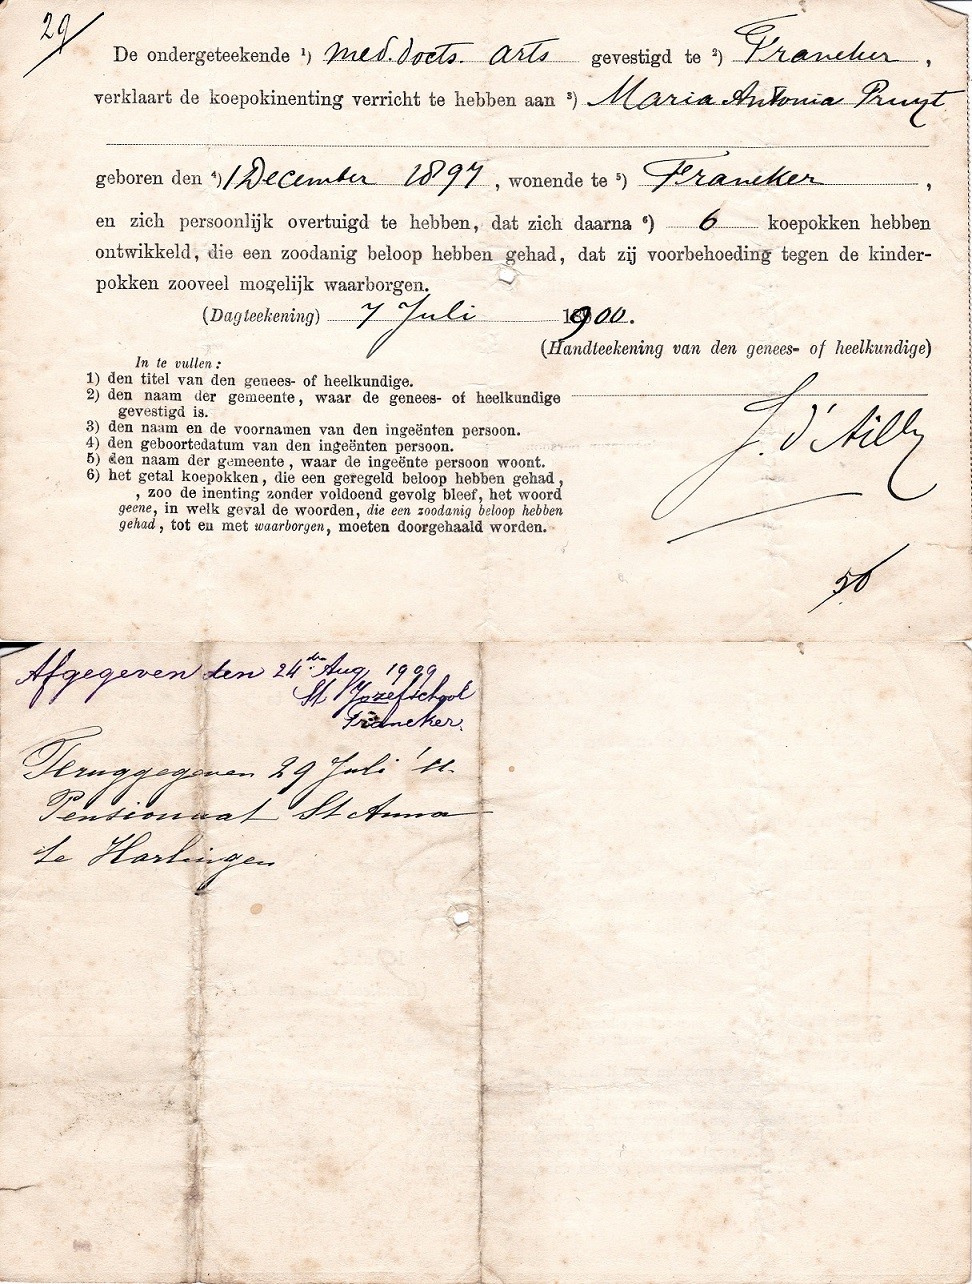 29
De ondergeteekende ¹) med. docts. arts gevestigd te ²) Franeker,
verklaart de koepokinenting verricht te hebben aan ³) Maria Antonia Pruyt
geboren den ⁴) 1 December 1897, wonende te ⁵) Franeker,
en zich persoonlijk overtuigd te hebben, dat zich daarna ⁶) 6 koepokken hebben
ontwikkeld, die een zoodanig beloop hebben gehad, dat zij voorbehoeding tegen de kinder-
pokken zooveel mogelijk waarborgen.
(Dagteekening) 7 Juli 1900.
(Handteekening van den genees- of heelkundige)
In te vullen:
1) den titel van den genees- of heelkundige.
2) den naam der gemeente, waar de genees- of heelkundige
gevestigd is.
3) den naam en de voornamen van den ingeënten persoon.
4) den geboortedatum van den ingeënten persoon.
5) den naam der gemeente, waar de ingeënte persoon woont.
6) het getal koepokken, die een geregeld beloop hebben gehad,
, zoo de inenting zonder voldoend gevolg bleef, het woord
geene, in welk geval de woorden, die een zoodanig beloop hebben
gehad, tot en met waarborgen, moeten doorgehaald worden.
J. d'Ailly
56
Afgegeven den 24 sten Aug 1909
St Jozefschool
Franeker.
Teruggegeven 29 Juli '11.
Pensionaat St Anna
te Harlingen